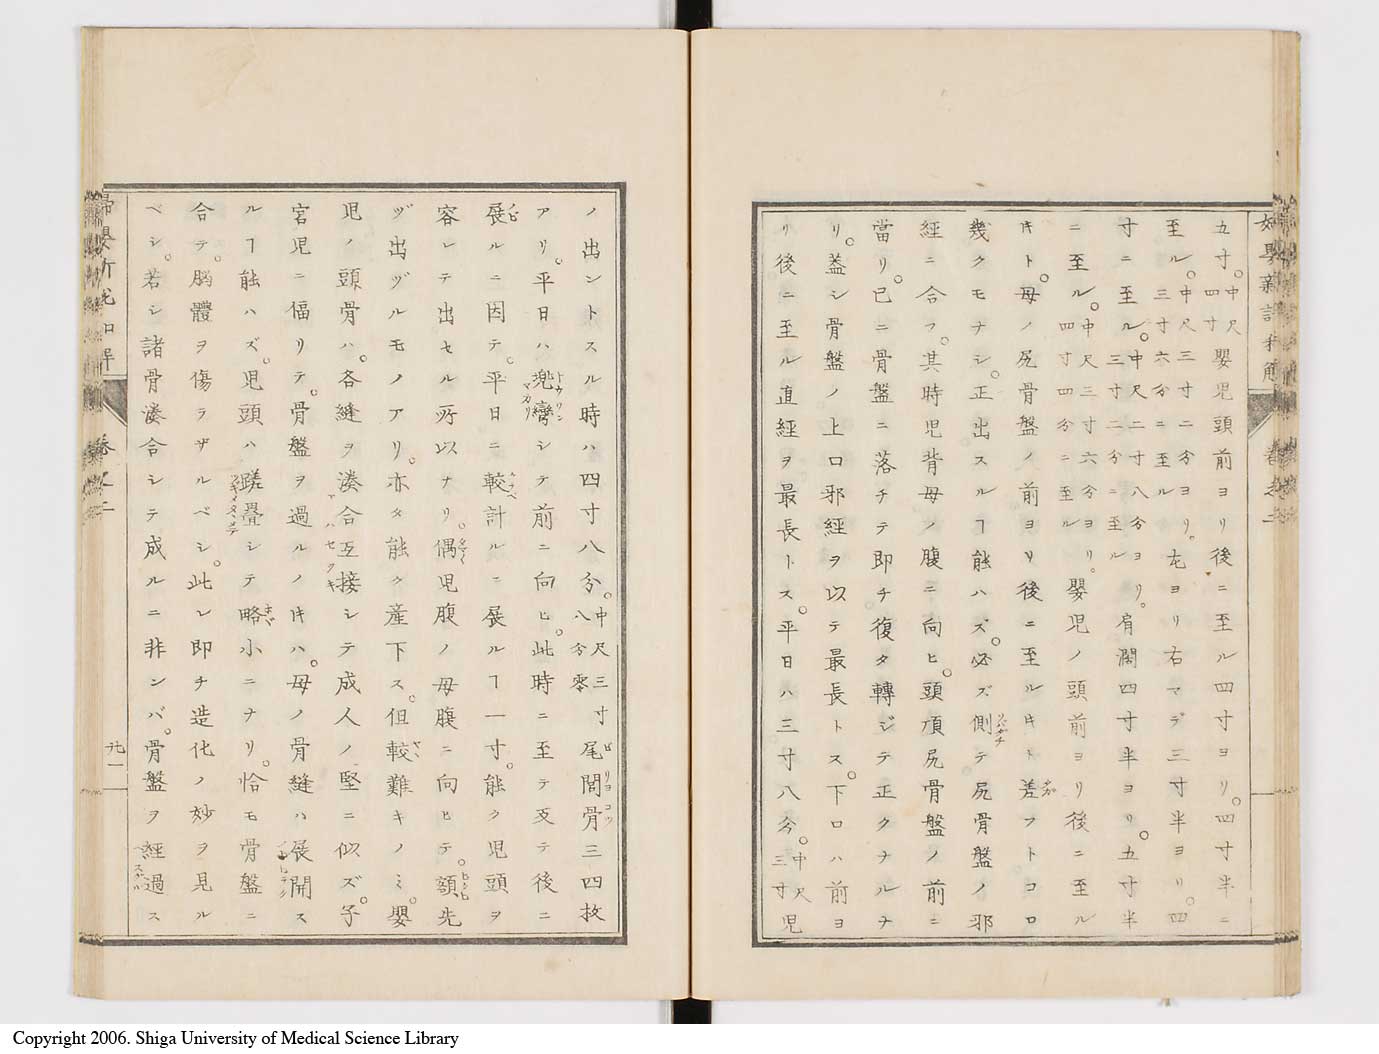 五寸。中尺四寸嬰児頭前ヨリ後ニ至ル四寸ヨリ。四寸半ニ
至ル。中尺三寸二分ヨリ。三寸六分ニ至ル左ヨリ右マデ三寸半ヨリ。四
寸ニ至ル。中尺二寸八分ヨリ。三寸二分ニ至ル肩濶四寸半ヨリ。五寸半
ニ至ル。中尺三寸六分ヨリ。四寸四分ニ至ル嬰児ノ頭前ヨリ後ニ至ル
キト。母ノ尻骨盤ノ前ヨリ後ニ至ルキト差フトコロ
幾クモナシ。正出スルヿ能ハズ。必ズ側テ尻骨盤ノ邪
經ニ合フ。其時児背母ノ腹ニ向ヒ。頭項尻骨盤ノ前ニ
當リ。已ニ骨盤ニ落チテ即チ復タ轉ジテ正クナルナ
リ。蓋シ骨盤ノ上口邪經ヲ以テ最長トス。下口ハ前ヨ
リ後ニ至ル直經ヲ最長トス。平日ハ三寸八分。中尺三寸児
ノ出ントスル時ハ四寸八分。中尺三寸八分零尾閭骨三四枚
アリ。平日ハ兠彎シテ前ニ向ヒ。此時ニ至テ支テ後ニ
展ルニ因テ。平日ニ較計ルニ展ルヿ一寸。能ク児頭ヲ
容レテ出セル所以ナリ。偶児腹ノ母腹ニ向ヒテ。額先
ヅ出ヅルモノアリ。亦タ能ク産下ス。但較難キノミ。嬰
児ノ頭骨ハ。各縫ヲ湊合互接シテ成人ノ堅ニ似ズ。子
宮児ニ偪リテ。骨盤ヲ過ルノキハ。母ノ骨縫ハ展開ス
ルヿ能ハズ。児頭ハ蹉疊シテ略小ニナリ。恰モ骨盤ニ
合テ。腦體ヲ傷ラザルベシ。此レ即チ造化ノ妙ヲ見ル
ベシ。若シ諸骨湊合シテ成ルニ非ンバ。骨盤ヲ經過ス
巻之二
九一
Copyright 2006. Shiga University of Medical Science Library